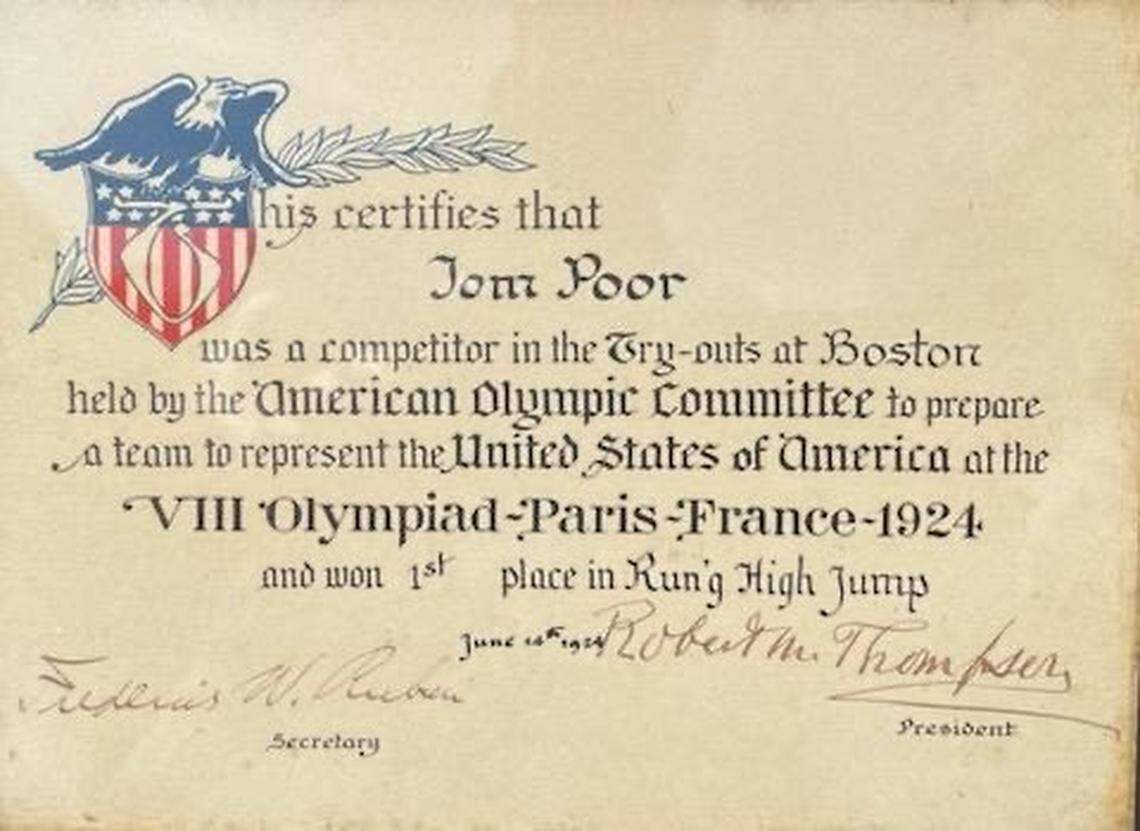 This certifies that
Tom Poor
was a competitor in the Try-outs at Boston
held by the American Olympic Committee to prepare
a team to represent the United States of America at the
VIII Olympiad-Paris-France-1924
and won 1st place in Run'g High Jump
June 14th 1924 Robert M. Thompson
Frederick W. Rubien
Secretary
President